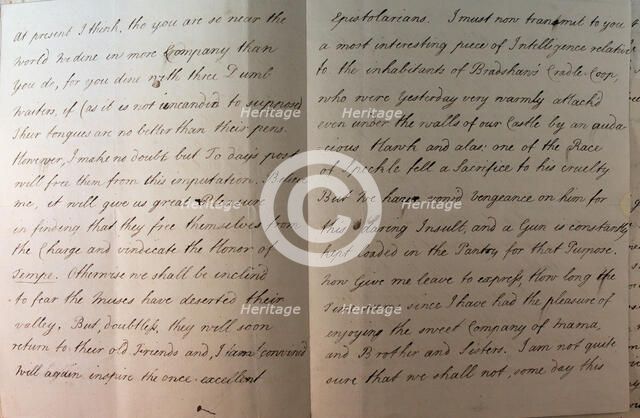 at present I think, tho you are so near the
World We dine in more Company than
You do, for you dine with three Dumb
Waiters, if (as it is not uncandid to suppose)
Their tongues are no better than their pens.
However, I make no doubt but To day's post
will free them from this imputation. Believe
me, it will give us great Pleasure
in finding that they free themselves from
the Charge and vindicate the Honor of
Tempe. Otherwise we shall be inclin'd
to fear the Muses have deserted their
valley. But, doubtless, they will soon
return to their old Friends and, I am convinced
will again inspire the once excellent
Epistolarians. I must now transmit to you
a most interesting piece of Intelligence relative
to the inhabitants of Bradshaw's Cradle-Coop,
who were Yesterday very warmly attack'd
even under the walls of our Castle by an auda-
cious Hawk and alas! one of the Race
of Speckle fell a Sacrifice to his cruelty
But We have vow'd vengeance on him for
this daring Insult, and a Gun is constantly
kept loaded in the Pantry for that Purpose.
Now Give me leave to express, How long the
time seems since I have had the pleasure of
enjoying the sweet Company of Mama,
and Brother and Sisters. I am not quite
sure that we shall not, some day this
Heritage
Heritage
Heritage
Heritage
Heritage
Heritage
Heritage
Heritage